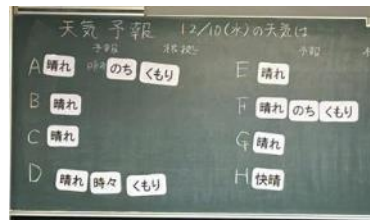 天気予報 12/10(水)の天気は
予報 根拠 予報
A 晴れ のち くもり
B 晴れ
C 晴れ
D 晴れ 時々 くもり
E 晴れ
F 晴れ のち くもり
G 晴れ
H 快晴